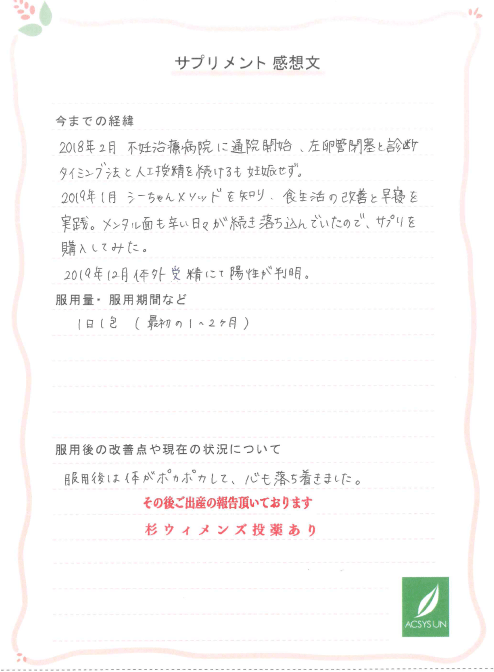 サプリメント 感想文
今までの経緯
2018年2月 不妊治療病院に通院開始、左卵管閉塞と診断
タイミング法と人工授精を続けるも妊娠せず。
2019年1月 シーちゃんメソッドを知り、食生活の改善と早寝を
実践。メンタル面も辛い日々が続き落ち込んでいたので、サプリを
購入してみた。
2019年12月体外受精にて陽性が判明。
服用量・服用期間など
1日1包 (最初の1〜2ヶ月)
服用後の改善点や現在の状況について
服用後は体がポカポカして、心も落ち着きました。
その後ご出産の報告頂いております
杉ウィメンズ投薬あり
ACSYSUN